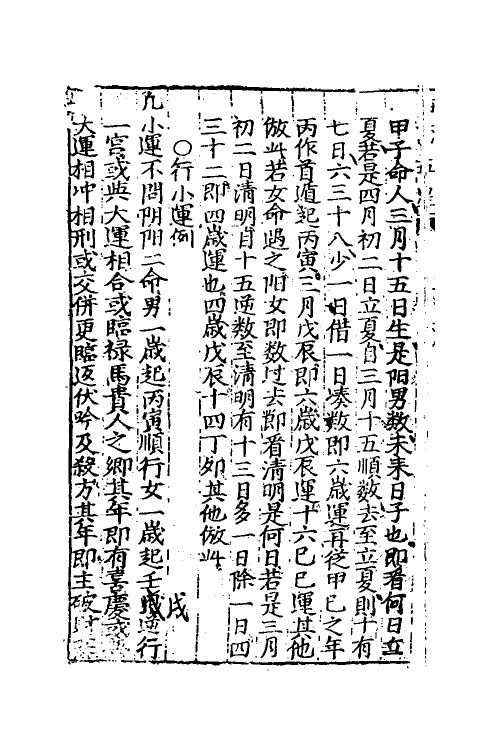 甲子命人三月十五日生是阳男数未来日子也即看何日立
夏若是四月初二日立夏自三月十五順数去至立夏則十有
七日六三十八少一日借一日凑数即六歲運再従甲己之年
丙作首遁起丙寅三月戊辰即六歲戊辰運十六己巳運其他
倣此若女命遇之阳女即数过去即看清明是何日若是三月
初二日清明自十五逆数至清明有十三日多一日除一日四
三十二即四歲運也四歲戊辰十四丁卯其他倣此
○行小運例
凡小運不問阴阳二命男一歲起丙寅順行女一歲起壬逆行
戌
一宮或與大運相合或臨禄馬貴人之鄉其年即有喜慶或
大運相冲相刑或交併更臨返伏吟及殺方其年即主破財